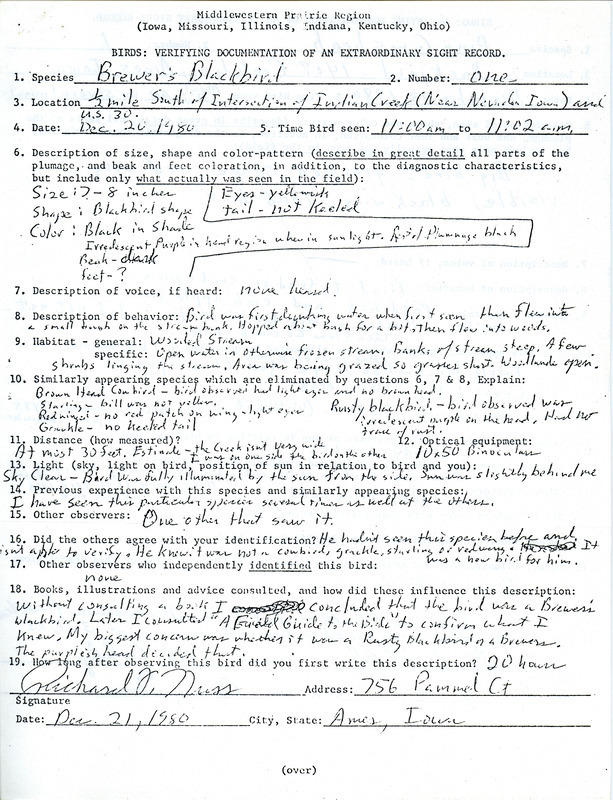 Middlewestern Prairie Region
(Iowa, Missouri, Illinois, Indiana, Kentucky, Ohio)
BIRDS: VERIFYING DOCUMENTATION OF AN EXTRAORDINARY SIGHT RECORD.
1. Species Brewer's Blackbird 2. Number: one
3. Location ½ mile South of Intersection of Indian Creek (Near Nevada Iowa) and
U.S. 30.
4. Date: Dec. 20, 1980 5. Time Bird seen: 11:00 am to 11:02 a.m.
6. Description of size, shape and color-pattern (describe in great detail all parts of the
plumage, and beak and feet coloration, in addition, to the diagnostic characteristics,
but include only what actually was seen in the field):
Size: 7-8 inches Eyes - yellowish
Shape: Blackbird shape tail - not keeled
Color: Black in Shade
Irredescent Purple in head region when in sunlight. Plumnage black
Beak - dark
feet - ?
7. Description of voice, if heard: none heard.
8. Description of behavior: Bird was first drinking water when first seen then flew into
a small bush on the stream bank. Hopped about bush for a bit, then flew into woods.
9. Habitat - general: Wooded Stream
specific: Open water in otherwise frozen stream. Banks of stream steep. A few
shrubs linging the stream. Area was being grazed so grasses short. Woodlands open.
10. Similarly appearing species which are eliminated by questions 6, 7 & 8, Explain:
Brown Head Cowbird - bird observed had light eyes and no brown head.
Starling - bill was not yellow. Rusty blackbird - bird observed was
Redwing - no red patch on wing - light eyes irredescent purple on the head. Had not
Grackle - no keeled tail trace of rust.
11. Distance (how measured)? 12. Optical equipment:
At most 30 feet. Estimate - the Creek isn't very wide 10x50 Binoculars
I was on one side the bird on the other
13. Light (sky, light on bird, position of sun in relation to bird and you):
Sky Clear - Bird was fully illuminated by the sun from the side. Sun was slightly behind me
14. Previous experience with this species and similarly appearing species:
I have seen this particular species several times as well as the others.
15. Other observers: One other that saw it.
16. Did the others agree with your identification? He hadn't seen this species before and
isn't able to verify. He knew it was not a cowbird, grackle, starling or redwing. It
was a new bird for him.
17. Other observers who independently identified this bird:
none
18. Books, illustrations and advice consulted, and how did these influence this description:
Without consulting a book I concluded that the bird was a Brewer's
blackbird. Later I consulted "A Field Guide to the Birds" to confirm what I
knew. My biggest concern was whether it was a Rusty Blackbird or a Brewers.
The purplish head decided that.
19. How long after observing this bird did you first write this description? 20 hours
Richard Address: 756 Pammel Ct
Signature
Date: Dec. 21, 1980 City, State: Ames, Iowa
(over)